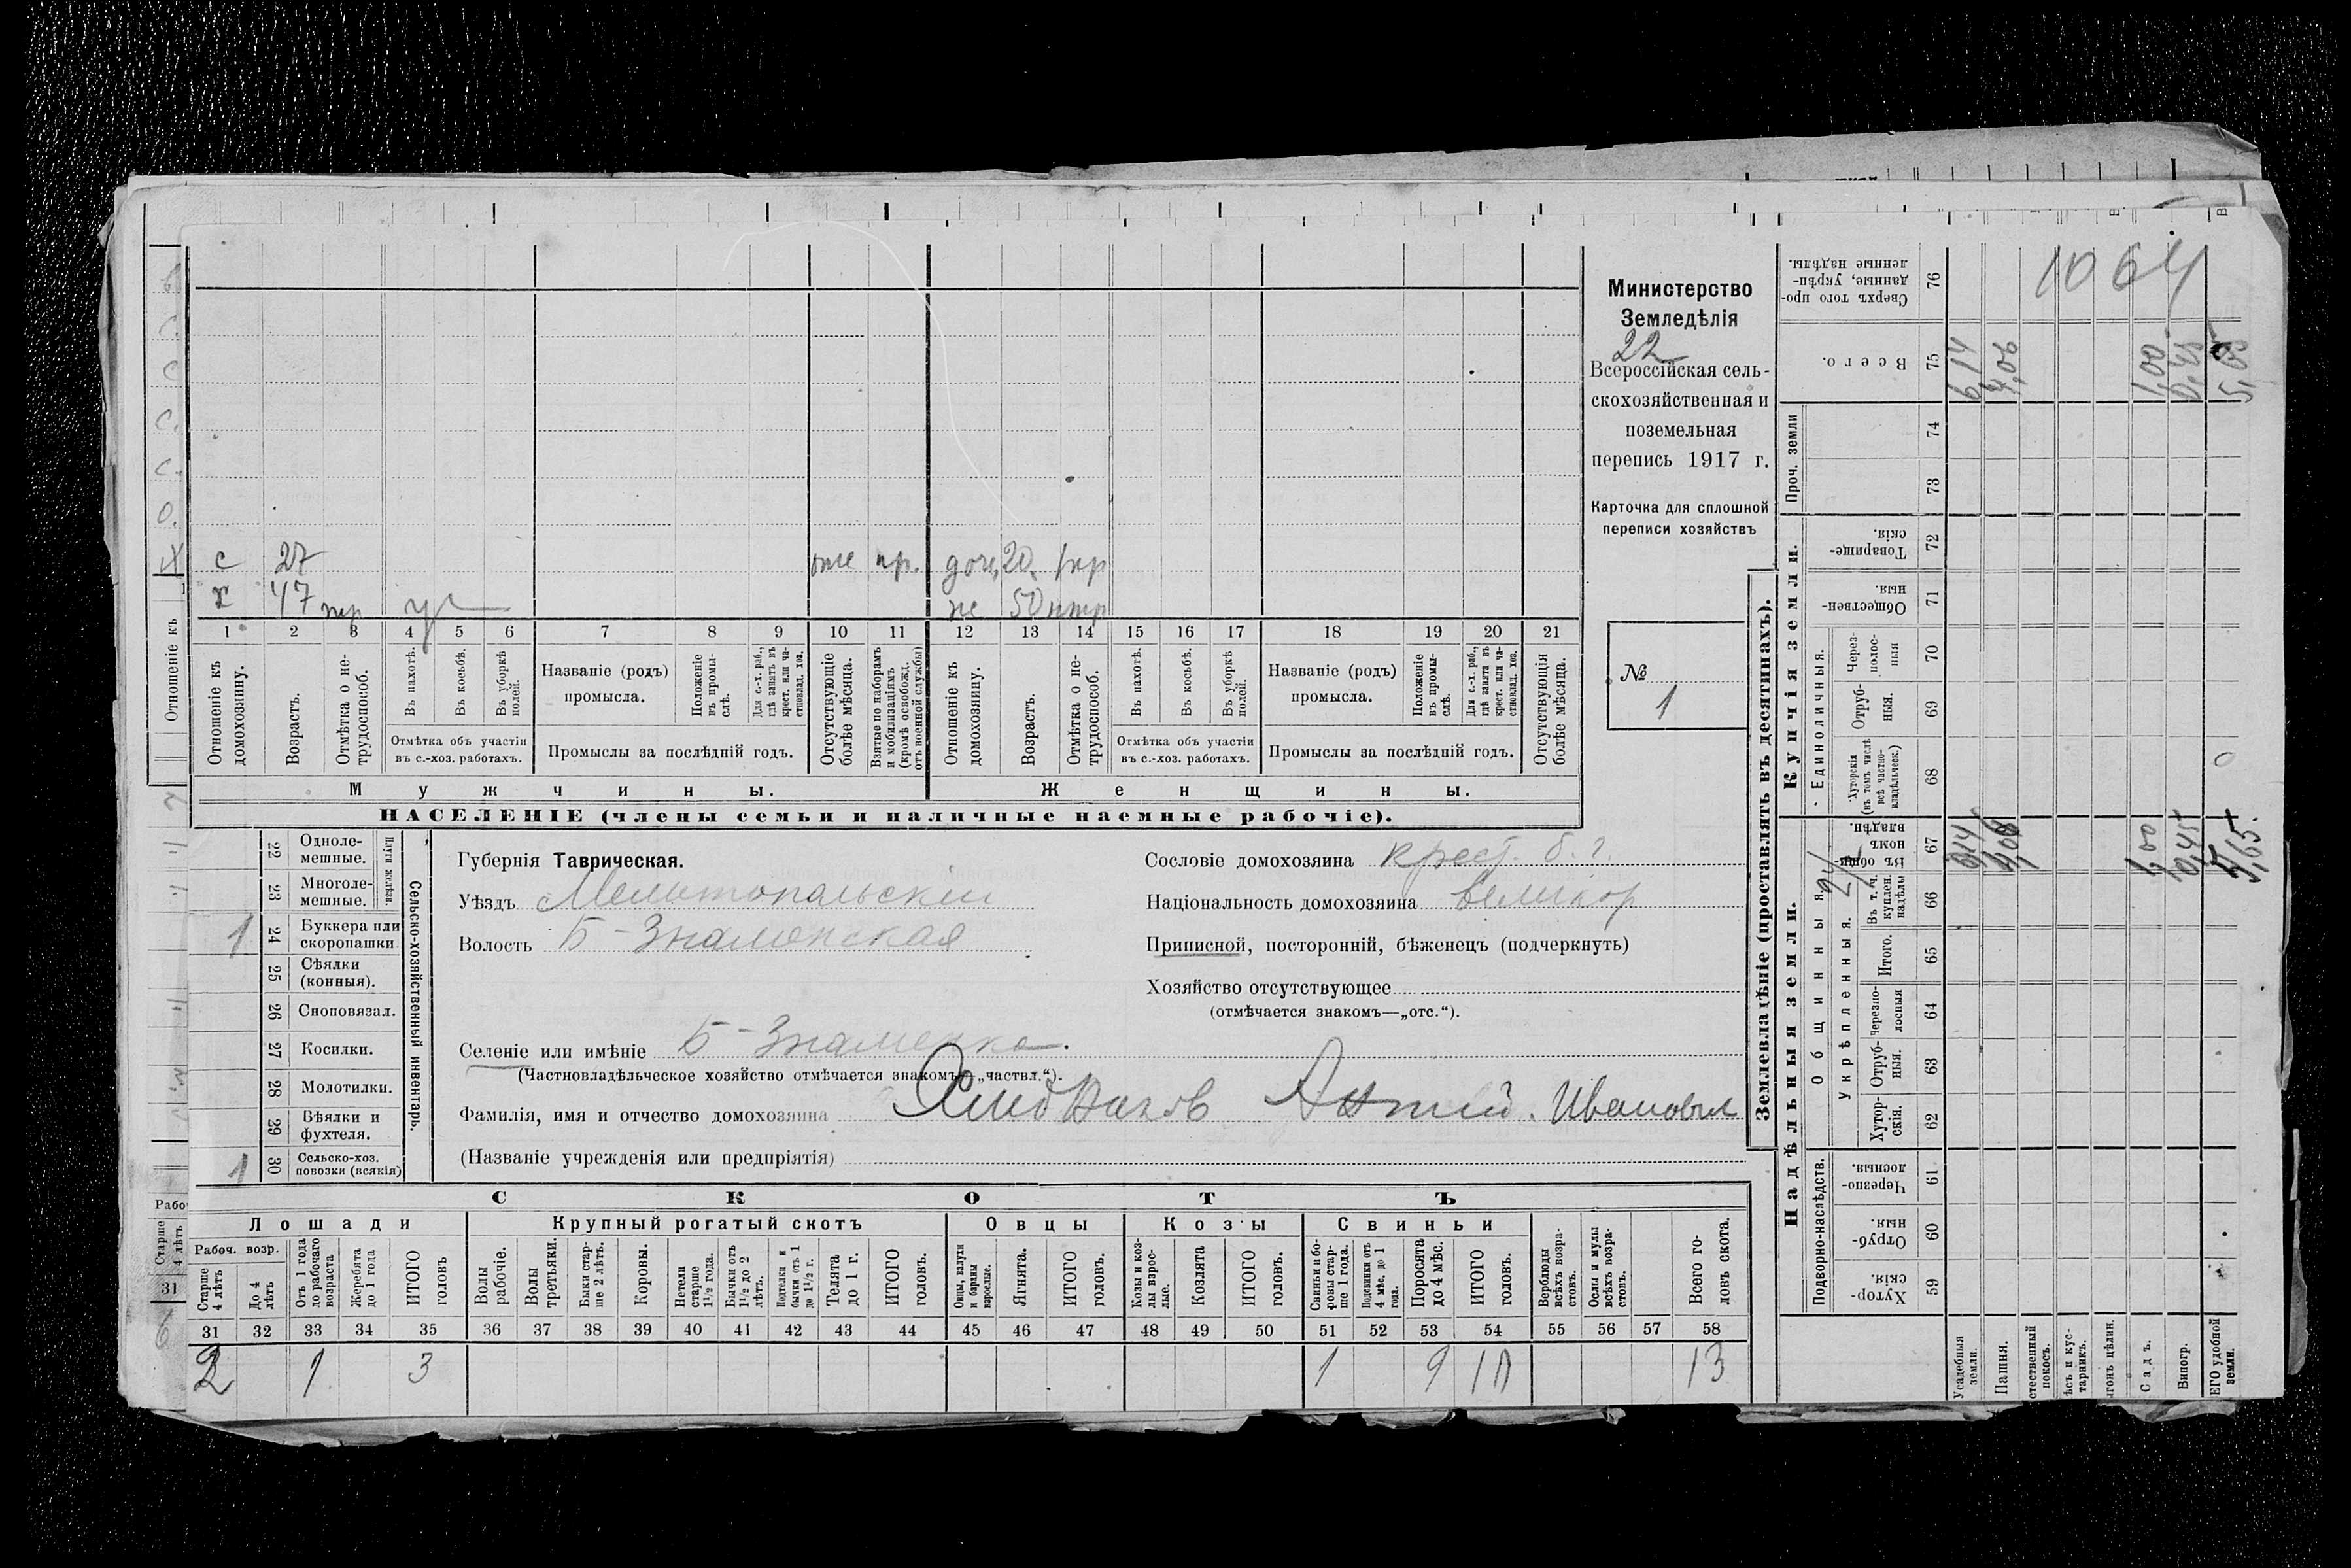 Министерство
Земледѣлія
22
Всероссійская сель-
скохозяйственная и
поземельная
перепись 1917 г.
Карточка для сплошной
переписи хозяйствъ
№
1
с 27 пр. доч. 20
х 47 ж 50
1 2 3 4 5 6 7 8 9 10 11 12 13 14 15 16 17 18 19 20 21
Отношеніе къ домохозяину.
Возрастъ.
Отмѣтка о не-трудоспособ.
Въ пахотѣ.
Въ косьбѣ.
Въ уборкѣ полей.
Отмѣтка объ участіи
въ с.-хоз. работахъ.
Названіе (родъ)
промысла.
Положеніе въ промы-слѣ.
Для с.-х. раб., гдѣ занятъ въ крест. или ча-стновлад. хоз.
Промыслы за послѣдній годъ.
Отсутствующіе болѣе мѣсяца.
Взятые по наборамъ и мобилизаціямъ (кромѣ освобожд. отъ военной службы)
Отношеніе къ домохозяину.
Возрастъ.
Отмѣтка о не-трудоспособ.
Въ пахотѣ.
Въ косьбѣ.
Въ уборкѣ полей.
Отмѣтка объ участіи
въ с.-хоз. работахъ.
Названіе (родъ)
промысла.
Положеніе въ промы-слѣ.
Для с.-х. раб., гдѣ занята въ крест. или ча-стновлад. хоз.
Промыслы за послѣдній годъ.
Отсутствующія болѣе мѣсяца.
Мужчины. Женщины.
НАСЕЛЕНІЕ (члены семьи и наличные наемные рабочіе).
Сельско-хозяйственный инвентарь.
Плуги желѣзн.
22 Одноле-мешные.
23 Многоле-мешные.
1 24 Буккера или скоропашки
25 Сѣялки (конныя).
26 Сноповязал.
27 Косилки.
28 Молотилки.
29 Вѣялки и фухтеля.
1 30 Сельско-хоз. повозки (всякія)
Губернія Таврическая.
Уѣздъ Мелитопальскій
Волость Б-Знаменская
Селеніе или имѣніе Б-Знаменка.
(Частновладѣльческое хозяйство отмѣчается знакомъ—„частвл.“).
Фамилія, имя и отчество домохозяина Ивановъ
(Названіе учрежденія или предпріятія)
Сословіе домохозяина крест. б. г.
Національность домохозяина великор
Приписной, посторонній, бѣженецъ (подчеркнуть)
Хозяйство отсутствующее
(отмѣчается знакомъ—„отс.“).
СКОТЪ
Лошади Крупный рогатый скотъ Овцы Козы Свиньи
Рабоч. возр.
Старше 4 лѣтъ
До 4 лѣтъ
Отъ 1 года до рабочаго возраста
Жеребята до 1 года
ИТОГО головъ
Волы рабочіе.
Волы третьяки.
Быки стар-ше 2 лѣтъ.
Коровы.
Нетели старше 1½ года.
Бычки отъ 1½ до 2 лѣтъ.
Подтелки и бычки отъ 1 до 1½ г.
Телята до 1 г.
ИТОГО головъ.
Овцы, валухи и бараны взрослые.
Ягнята.
ИТОГО головъ.
Козы и коз-лы взрос-лые.
Козлята
ИТОГО головъ.
Свиньи и бо-ровы стар-ше 1 года.
Подсвинки отъ 4 мѣс. до 1 года.
Поросята до 4 мѣс.
ИТОГО головъ.
Верблюды всѣхъ возра-стовъ.
Ослы и мулы всѣхъ возра-стовъ.
Всего го-ловъ скота.
31 32 33 34 35 36 37 38 39 40 41 42 43 44 45 46 47 48 49 50 51 52 53 54 55 56 57 58
2 1 3 1 9 10 13
Землевладѣніе (проставлять въ десятинахъ).
Надѣльныя земли. Купчія земли. Проч. земли
Подворно-наслѣдств.
Общинныя
Укрѣпленныя.
Единоличныя.
59 Хутор-скія.
60 Отруб-ныя.
61 Черезпо-лосныя.
62 Хутор-скія.
63 Отруб-ныя.
64 Черезпо-лосныя
65 Итого.
66 Въ т. ч. куплен. надѣлы
67 Въ общин-номъ владѣн.
68 Хуторскія (въ томъ числѣ всѣ частно-владѣльческ.)
69 Отруб-ныя.
70 Через-полос-ныя
71 Обществен-ныя.
72 Товарище-скія
73
74
75 Всего.
76 Сверхъ того про-данные, укрѣп-ленные надѣлы.
Усадебныя земли.
Пашня.
Садъ.
Виногр.
удобной земли.
1,00 0,45 5,65
6,14 4,06 1,00 0,45
1064
Отношеніе къ
Старше 4 лѣтъ
31